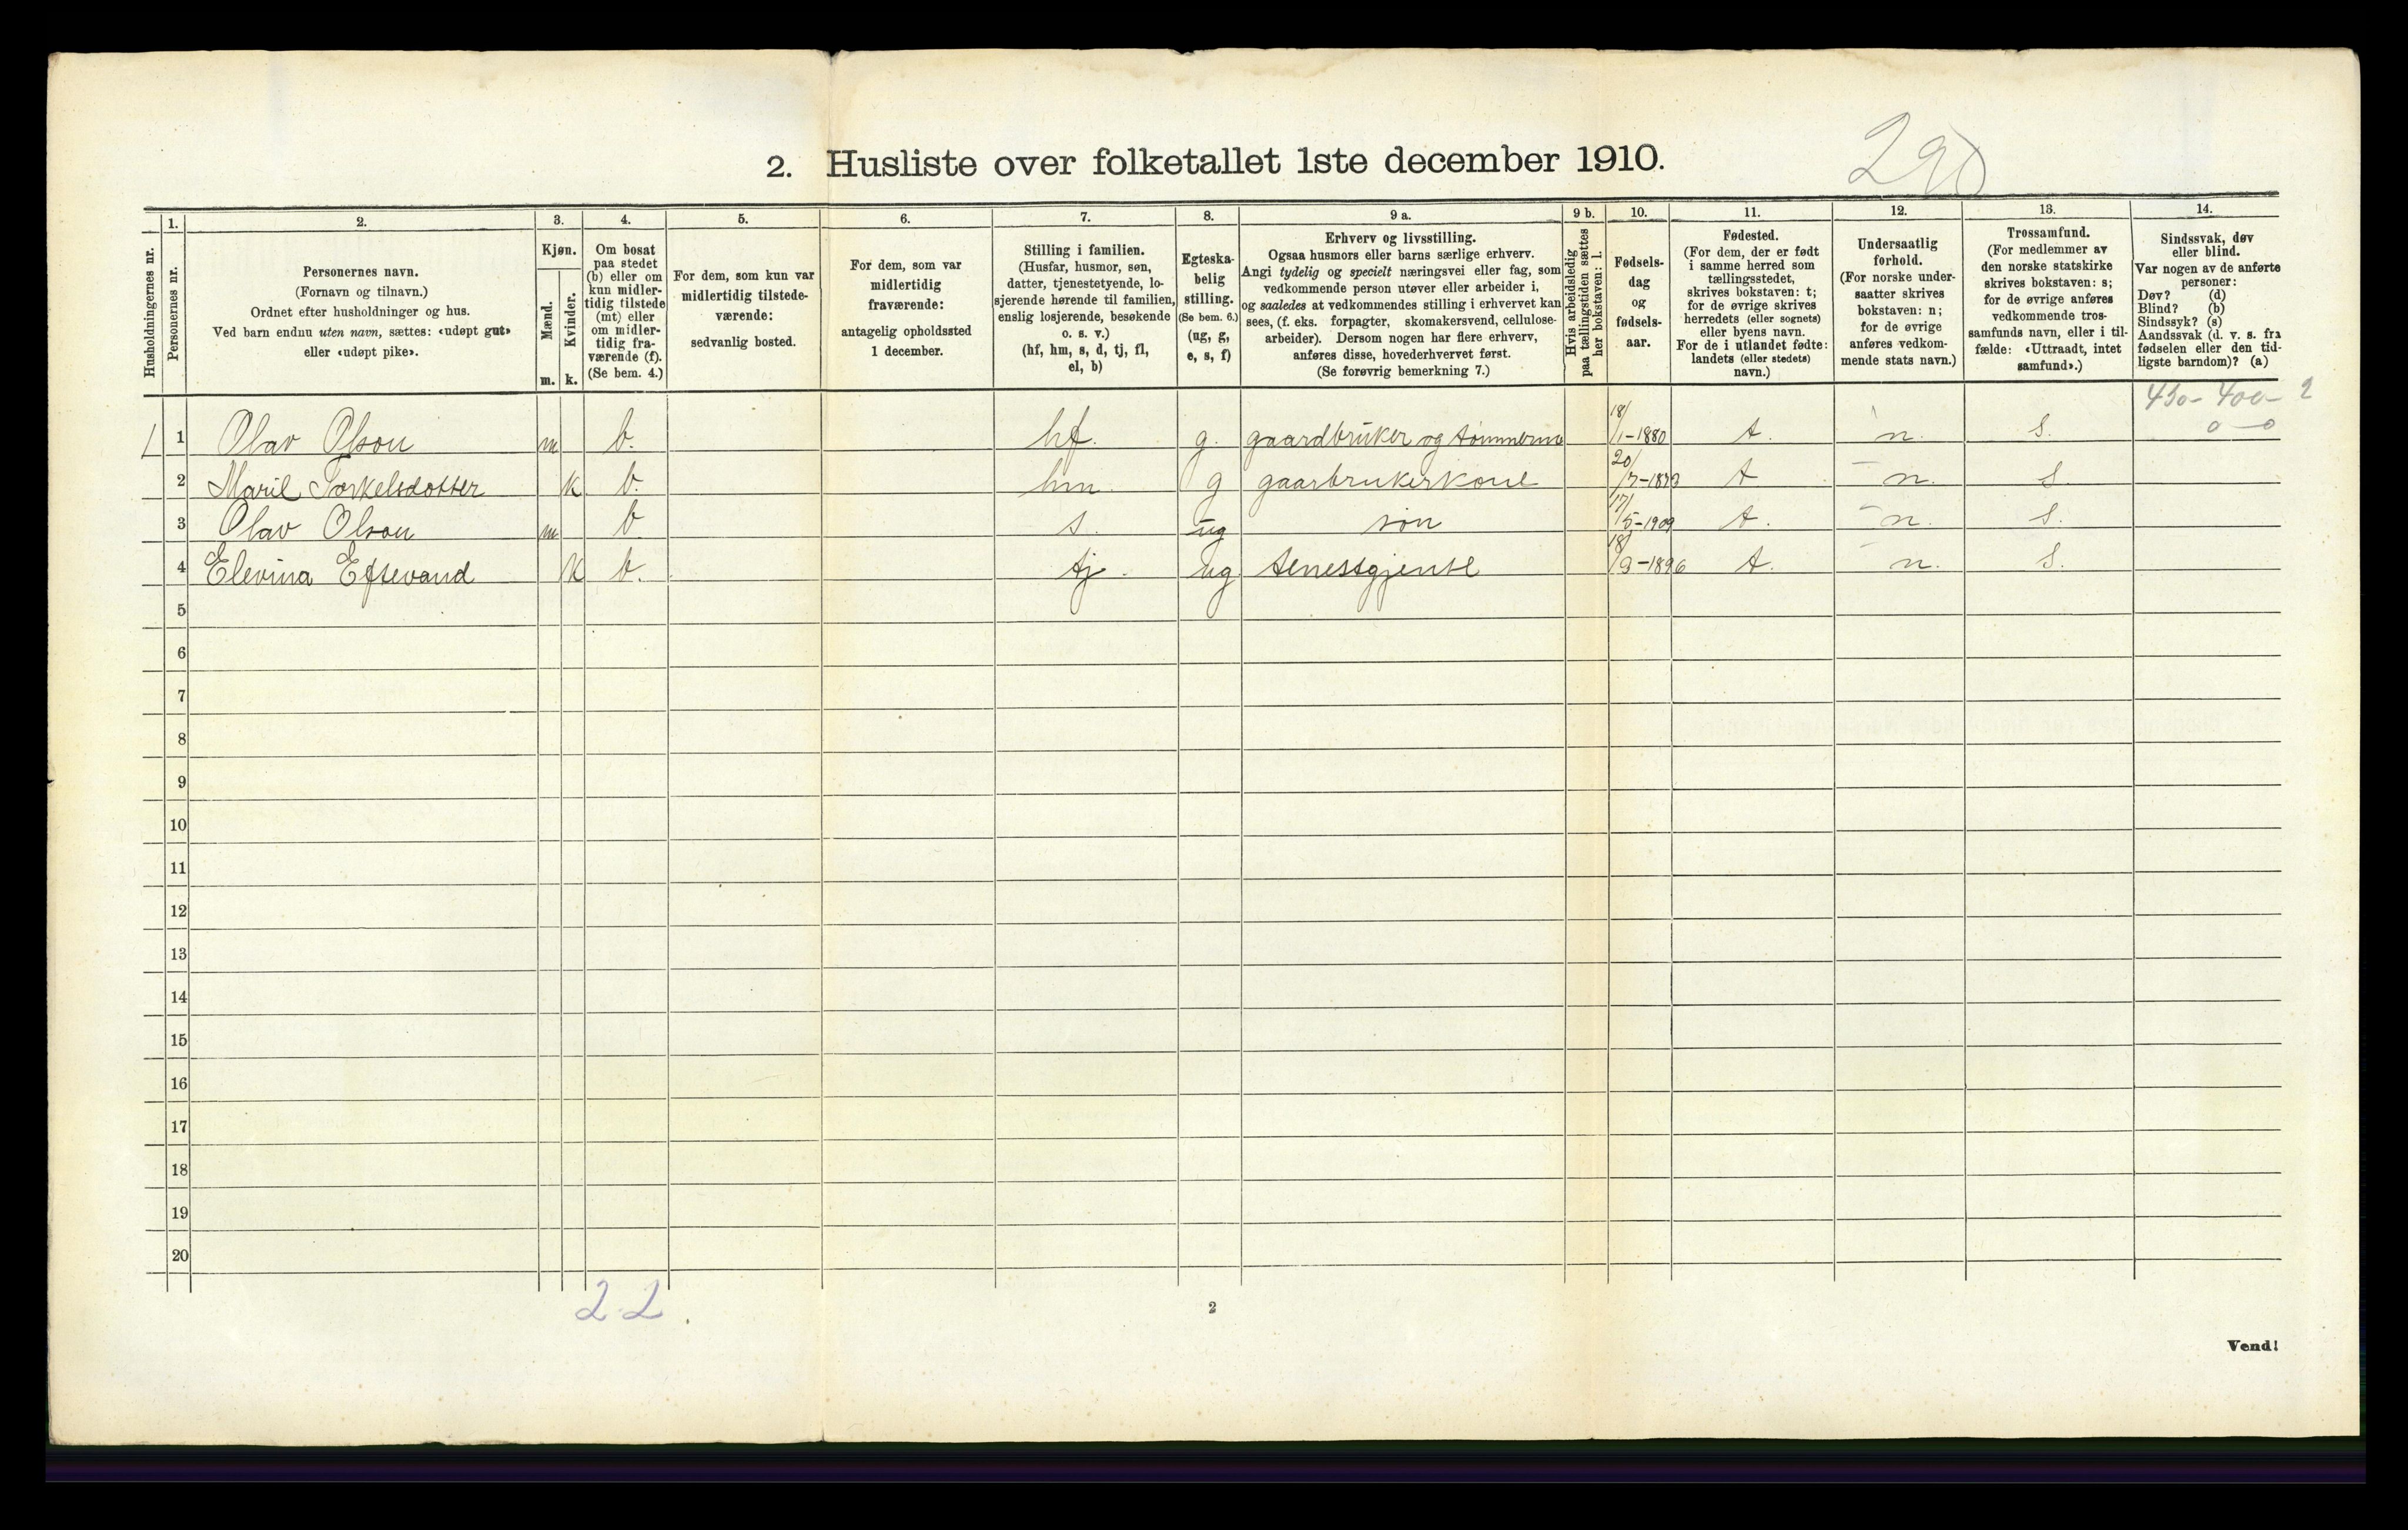 2. Husliste over folketallet 1ste december 1910.
290
Husholdningernes nr.
1.
Personernes nr.
2.
Personernes navn.
(Fornavn og tilnavn.)
Ordnet efter husholdninger og hus.
Ved barn endnu uten navn, sættes: «udøpt gut»
eller «udøpt pike».
3.
Kjøn.
Mænd.
Kvinder.
m. k.
4.
Om bosat
paa stedet
(b) eller om
kun midler-
tidig tilstede
(mt) eller
om midler-
tidig fra-
værende (f).
(Se bem. 4.)
5.
For dem, som kun var
midlertidig tilstede-
værende:
sedvanlig bosted.
6.
For dem, som var
midlertidig
fraværende:
antagelig opholdssted
1 december.
7.
Stilling i familien.
(Husfar, husmor, søn,
datter, tjenestetyende, lo-
sjerende hørende til familien,
enslig losjerende, besøkende
o. s. v.)
(hf, hm, s, d, tj, fl,
el, b)
8.
Egteska-
belig
stilling.
(Se bem. 6.)
(ug, g,
e, s, f)
9 a.
Erhverv og livsstilling.
Ogsaa husmors eller barns særlige erhverv.
Angi tydelig og specielt næringsvei eller fag, som
vedkommende person utøver eller arbeider i,
og saaledes at vedkommendes stilling i erhvervet kan
sees, (f. eks. forpagter, skomakersvend, cellulose-
arbeider). Dersom nogen har flere erhverv,
anføres disse, hovederhvervet først.
(Se forøvrig bemerkning 7.)
9 b.
Hvis arbeidsledig
paa tællingstiden sættes
her bokstaven: l.
10.
Fødsels-
dag
og
fødsels-
aar.
11.
Fødested.
(For dem, der er født
i samme herred som
tællingsstedet,
skrives bokstaven: t;
for de øvrige skrives
herredets (eller sognets)
eller byens navn.
For de i utlandet fødte:
landets (eller stedets)
navn.)
12.
Undersaatlig
forhold.
(For norske under-
saatter skrives
bokstaven: n;
for de øvrige
anføres vedkom-
mende stats navn.)
13.
Trossamfund.
(For medlemmer av
den norske statskirke
skrives bokstaven: s;
for de øvrige anføres
vedkommende tros-
samfunds navn, eller i til-
fælde: «Uttraadt, intet
samfund».)
14.
Sindssvak, døv
eller blind.
Var nogen av de anførte
personer:
Døv? (d)
Blind? (b)
Sindssyk? (s)
Aandssvak (d. v. s. fra
fødselen eller den tid-
ligste barndom)? (a)
430- 400- 2
0-0
1 1 Olav Olson m b. hf. g. gaardbruker og tømmerm 18/1-1880 t. n. s.
2 Torkelsdotter k b. hm. g gaarbrukerkone t n. s.
3 Olav Olson m b s. ug søn 17/5-1909 t. n. s.
4 Elevina Eftevand k b. tj. ug tenestgjente t. n. s.
5
6
7
8
9
10
11
12
13
14
15
16
17
18
19
20
2 2.
2
Vend!